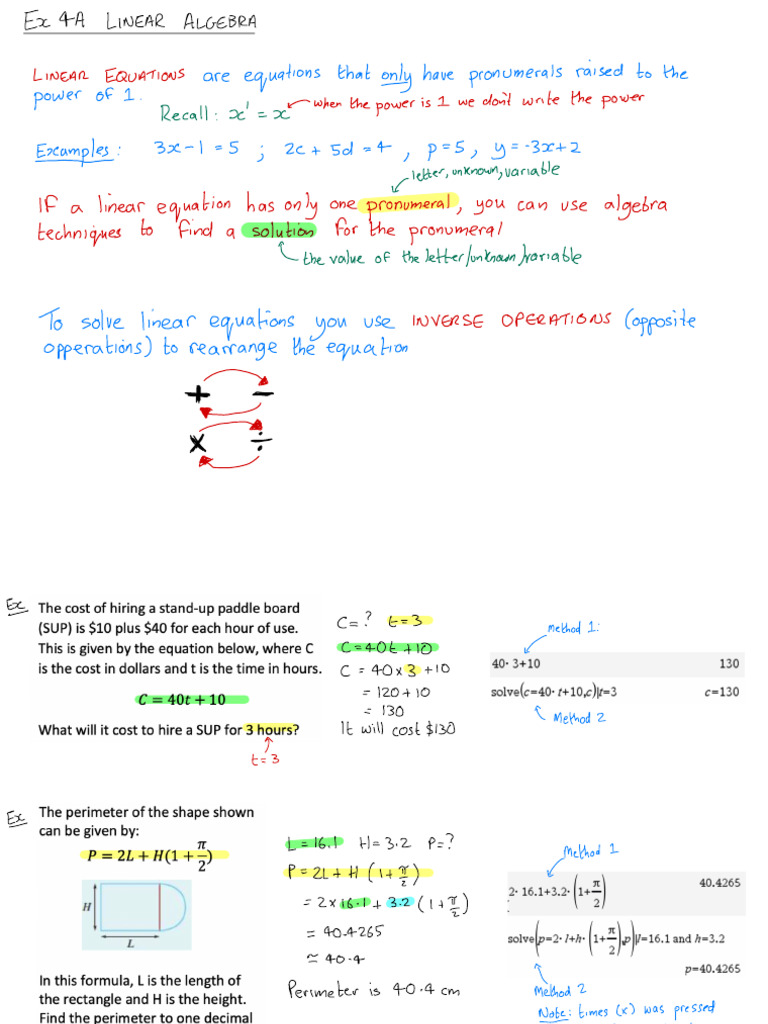 Ex 4A LINEAR ALGEBRA
LINEAR EQUATIONS are equations that only have pronumerals raised to the
power of 1.
Recall: x¹ = x
when the power is 1 we don't write the power
Examples: 3x-1=5 ; 2c + 5d = 4 , p=5 , y = -3x+2
letter, unknown, variable
If a linear equation has only one pronumeral, you can use algebra
techniques to find a solution for the pronumeral
the value of the letter/unknown/variable
To solve linear equations you use INVERSE OPERATIONS (opposite
opperations) to rearrange the equation
+ −
× ÷
Ex
The cost of hiring a stand-up paddle board
(SUP) is $10 plus $40 for each hour of use.
This is given by the equation below, where C
is the cost in dollars and t is the time in hours.
C = 40t + 10
What will it cost to hire a SUP for 3 hours?
t=3
C=? t=3
C=40t+10
C = 40×3+10
= 120+10
= 130
It will cost $130
method 1:
40· 3+10 130
solve(c=40· t+10,c)|t=3 c=130
Method 2
Ex
The perimeter of the shape shown
can be given by:
P = 2L + H(1 + π/2)
H
L
In this formula, L is the length of
the rectangle and H is the height.
Find the perimeter to one decimal
L=16.1 H=3.2 P=?
P=2L+H(1+π/2)
=2×16.1+3.2(1+π/2)
= 40.4265
≃ 40.4
Perimeter is 40.4 cm
Method 1
2· 16.1+3.2·(1+π/2) 40.4265
solve(p=2· l+h·(1+π/2),p)|l=16.1 and h=3.2
p=40.4265
Method 2
Note: times (x) was pressed